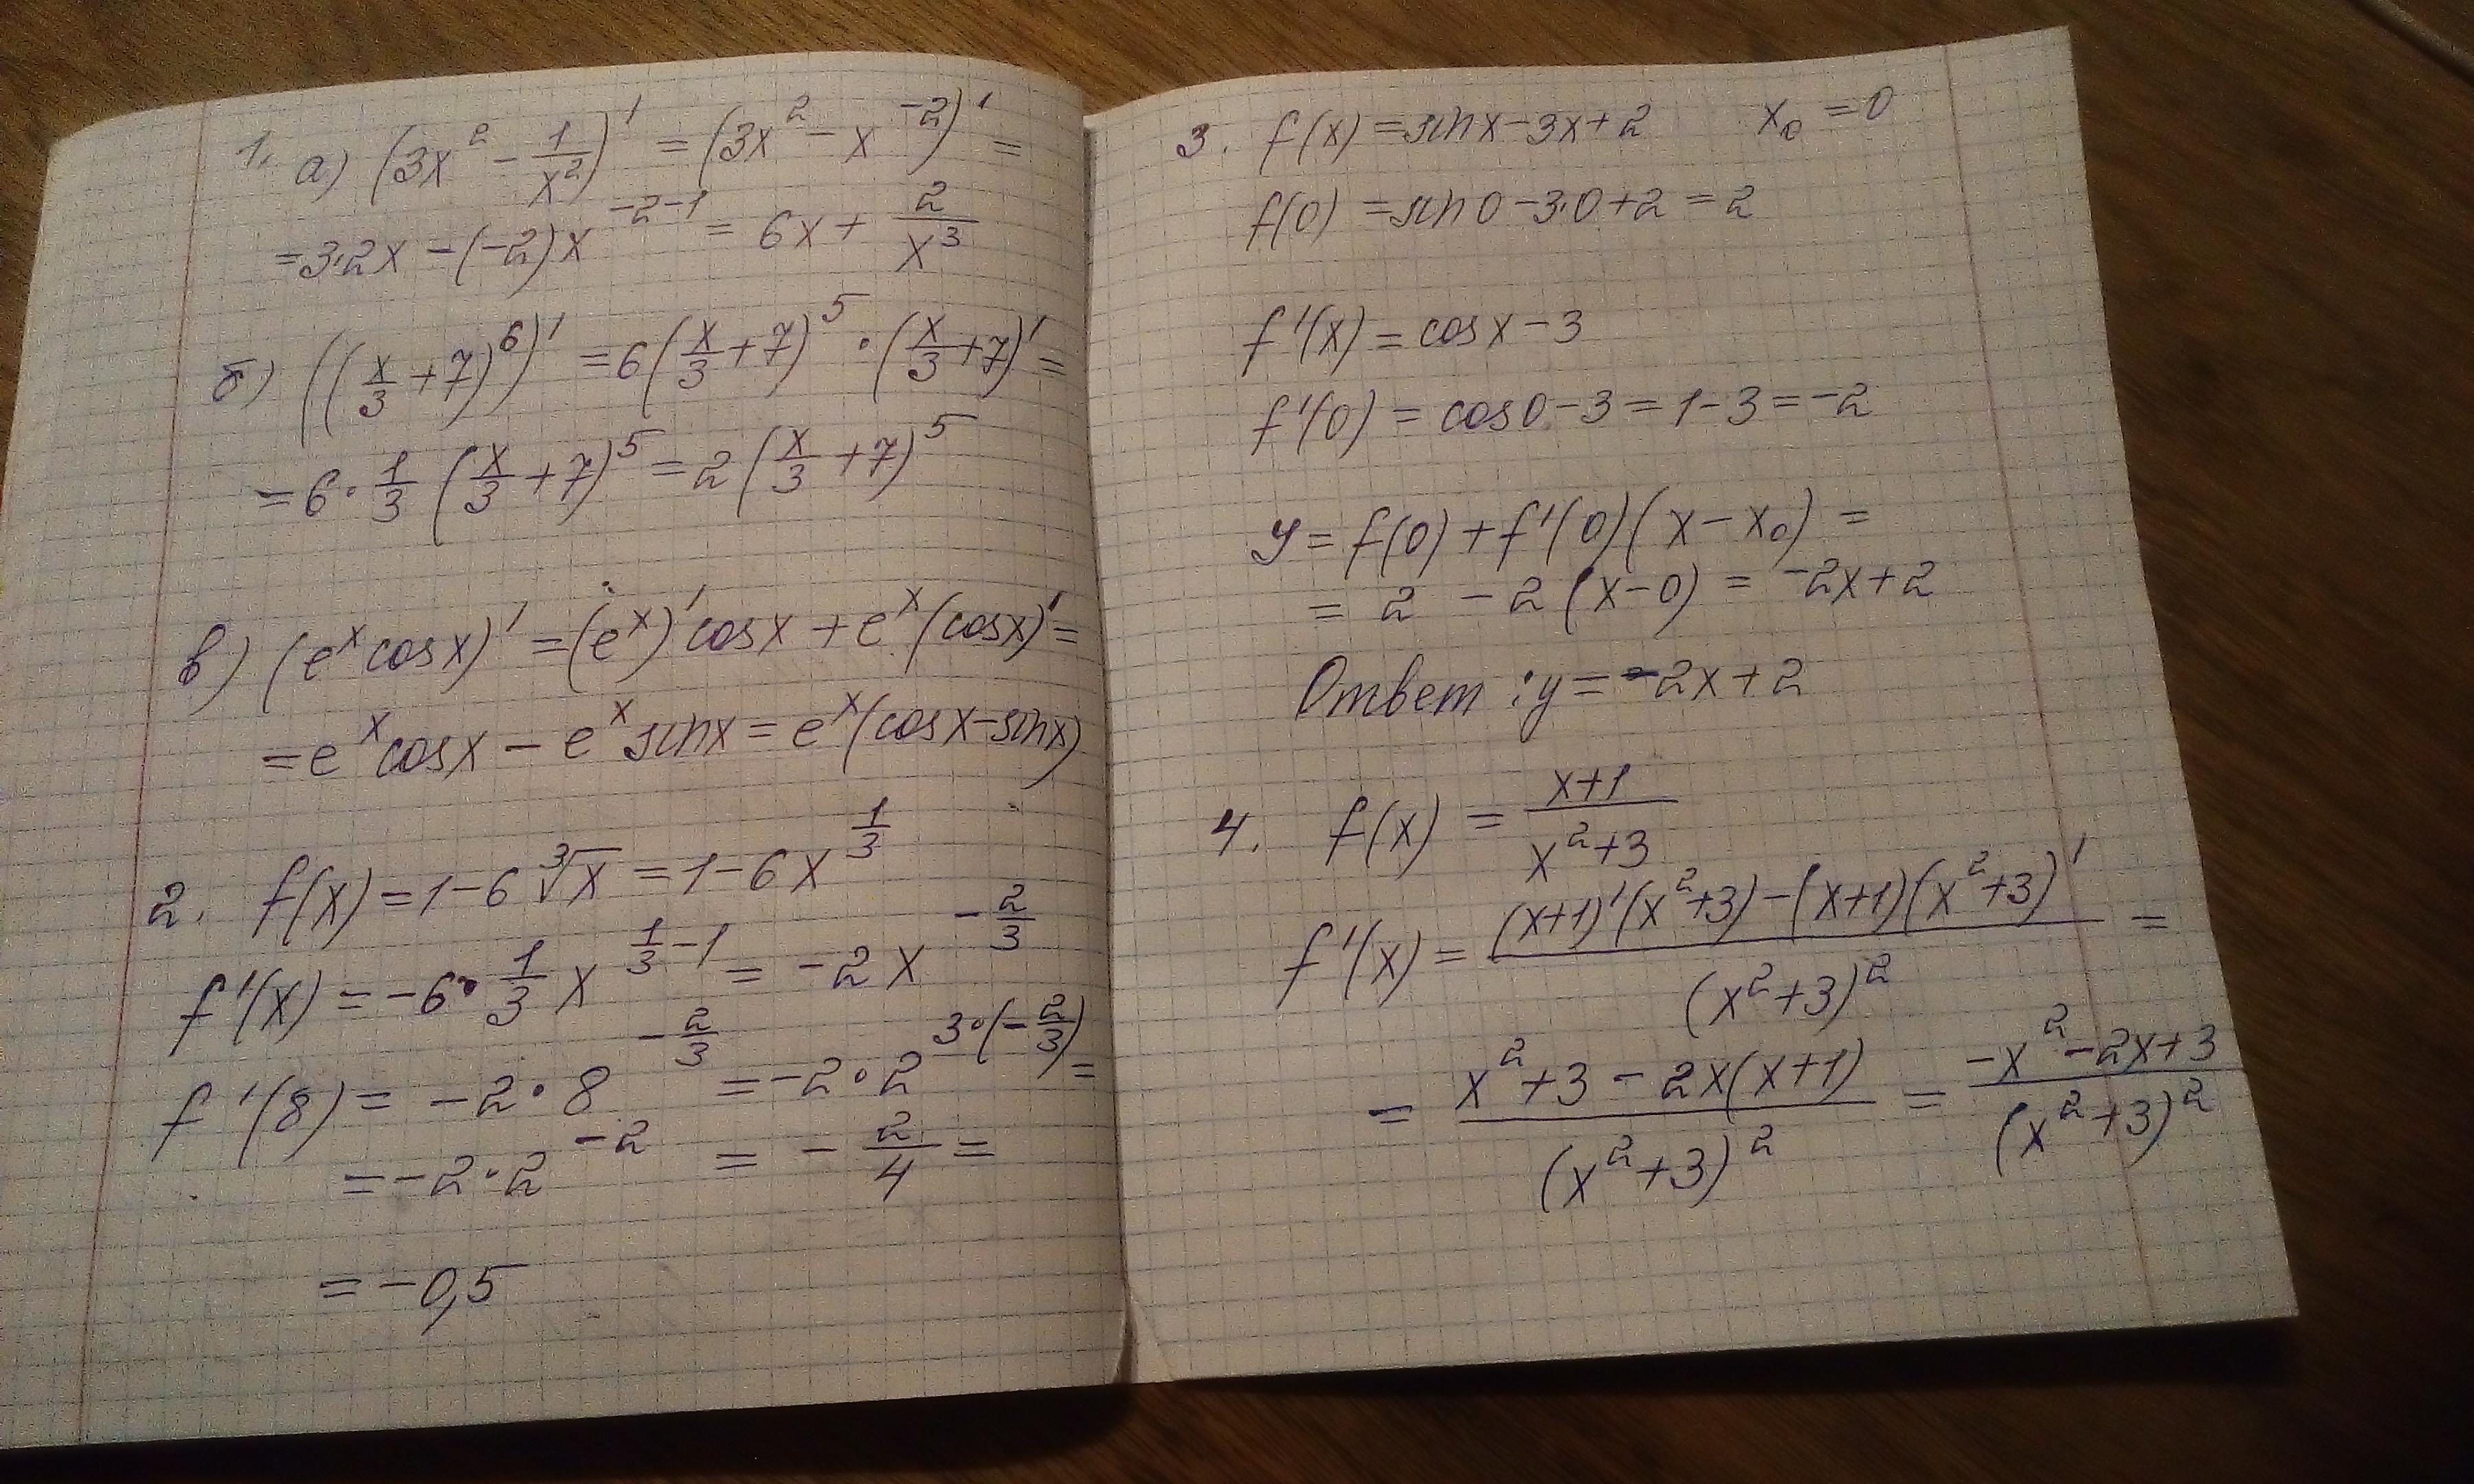 1. а) (3x² - 1/x²)' = (3x² - x⁻²)' =
= 3·2x - (-2)x⁻²⁻¹ = 6x + 2/x³
б) ((x/3 + 7)⁶)' = 6(x/3 + 7)⁵ · (x/3 + 7)' =
= 6 · 1/3 (x/3 + 7)⁵ = 2(x/3 + 7)⁵
в) (eˣ cosx)' = (eˣ)' cosx + eˣ (cosx)' =
= eˣ cosx - eˣ sinx = eˣ(cosx - sinx)
2. f(x) = 1 - 6∛x = 1 - 6x^(1/3)
f'(x) = -6 · 1/3 x^(1/3 - 1) = -2x^(-2/3)
f'(8) = -2 · 8^(-2/3) = -2 · 2^(3·(-2/3)) =
= -2 · 2⁻² = - 2/4 =
= -0,5
3. f(x) = sinx - 3x + 2 x₀ = 0
f(0) = sin0 - 3·0 + 2 = 2
f'(x) = cosx - 3
f'(0) = cos0 - 3 = 1 - 3 = -2
y = f(0) + f'(0)(x - x₀) =
= 2 - 2(x - 0) = -2x + 2
Ответ: y = -2x + 2
4. f(x) = (x+1)/(x²+3)
f'(x) = ((x+1)'(x²+3) - (x+1)(x²+3)')/(x²+3)² =
= (x²+3 - 2x(x+1))/(x²+3)² = (-x² - 2x + 3)/(x²+3)²